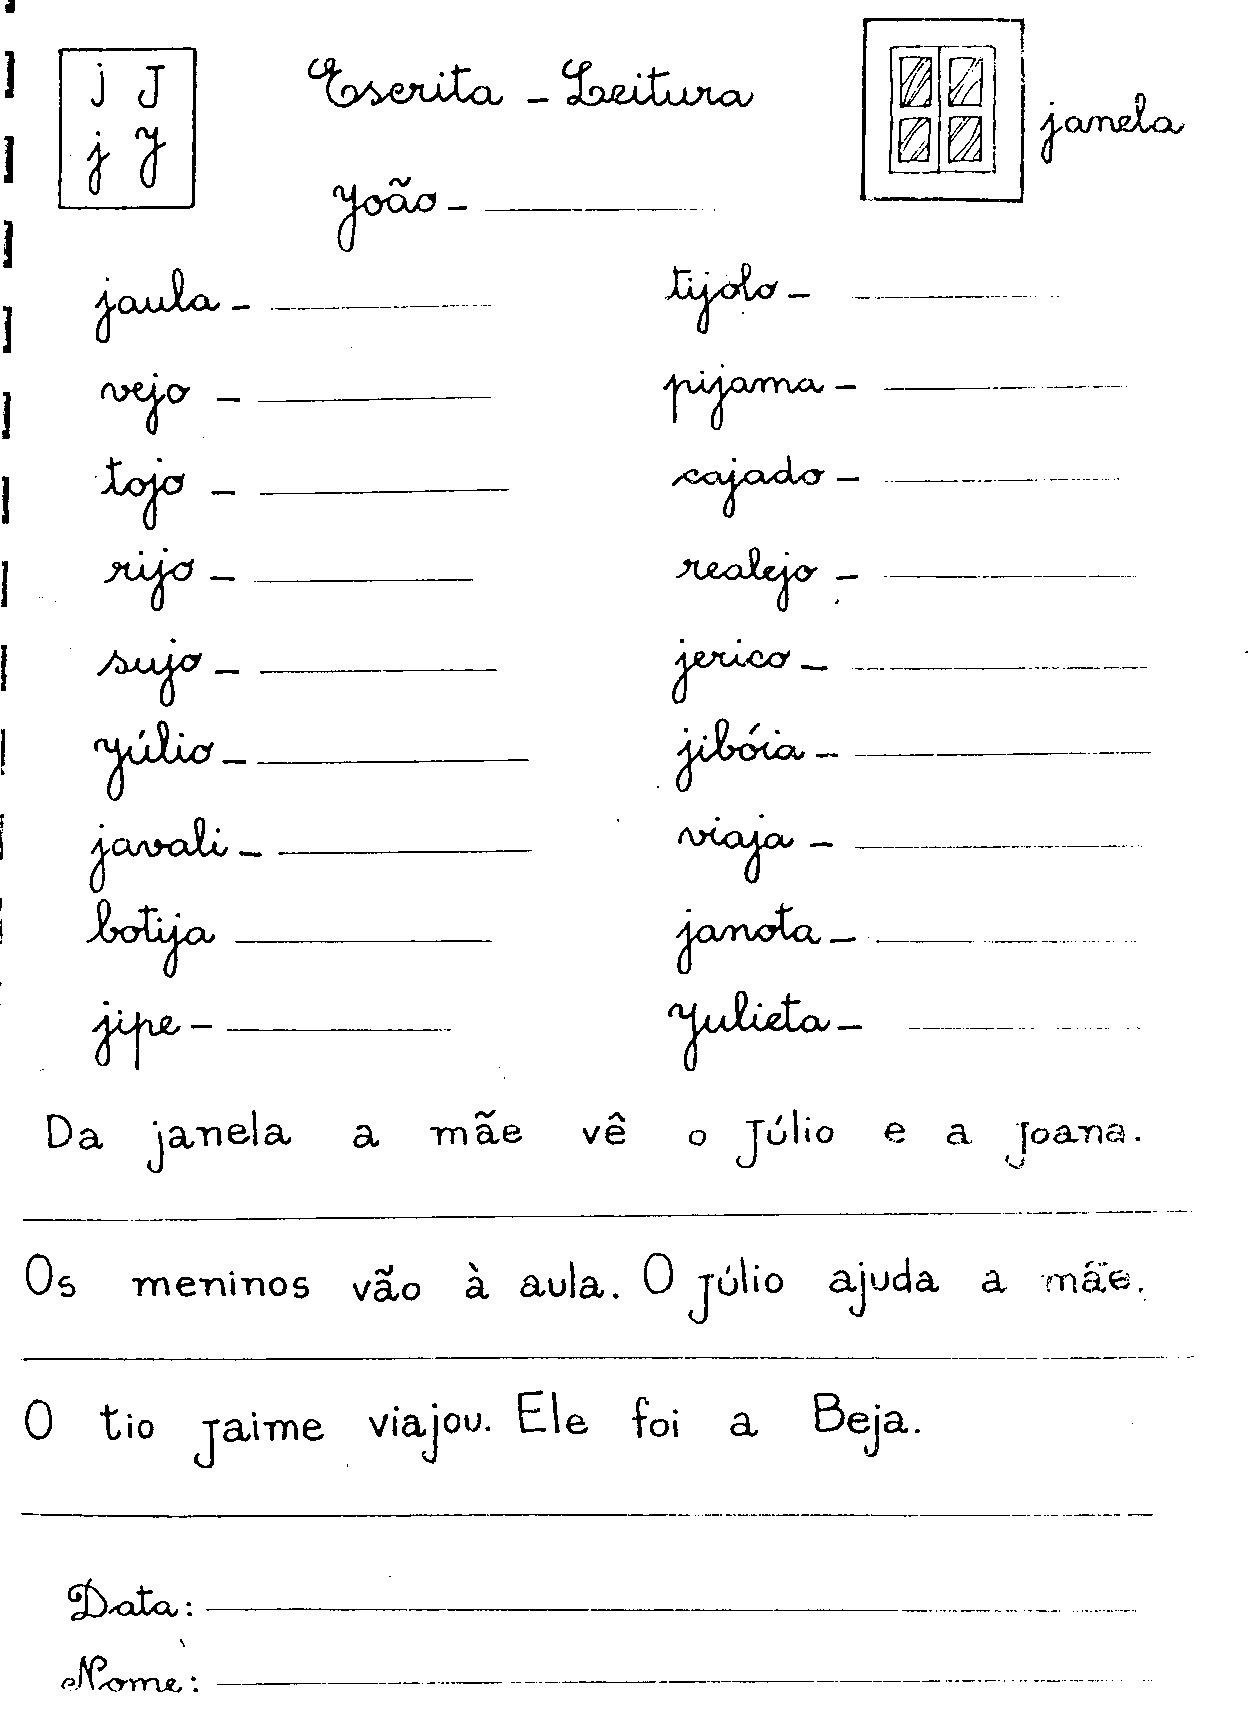 j J Escrita - Leitura
j J janela
João -
jaula - tijolo -
vejo - pijama -
tojo - cajado -
rijo - realejo -
sujo - jerico -
Júlio - jibóia -
javali - viaja -
botija janota -
jipe - Julieta -
Da janela a mãe vê o Júlio e a Joana.
Os meninos vão à aula. O Júlio ajuda a mãe.
O tio Jaime viajou. Ele foi a Beja.
Data:
Nome: